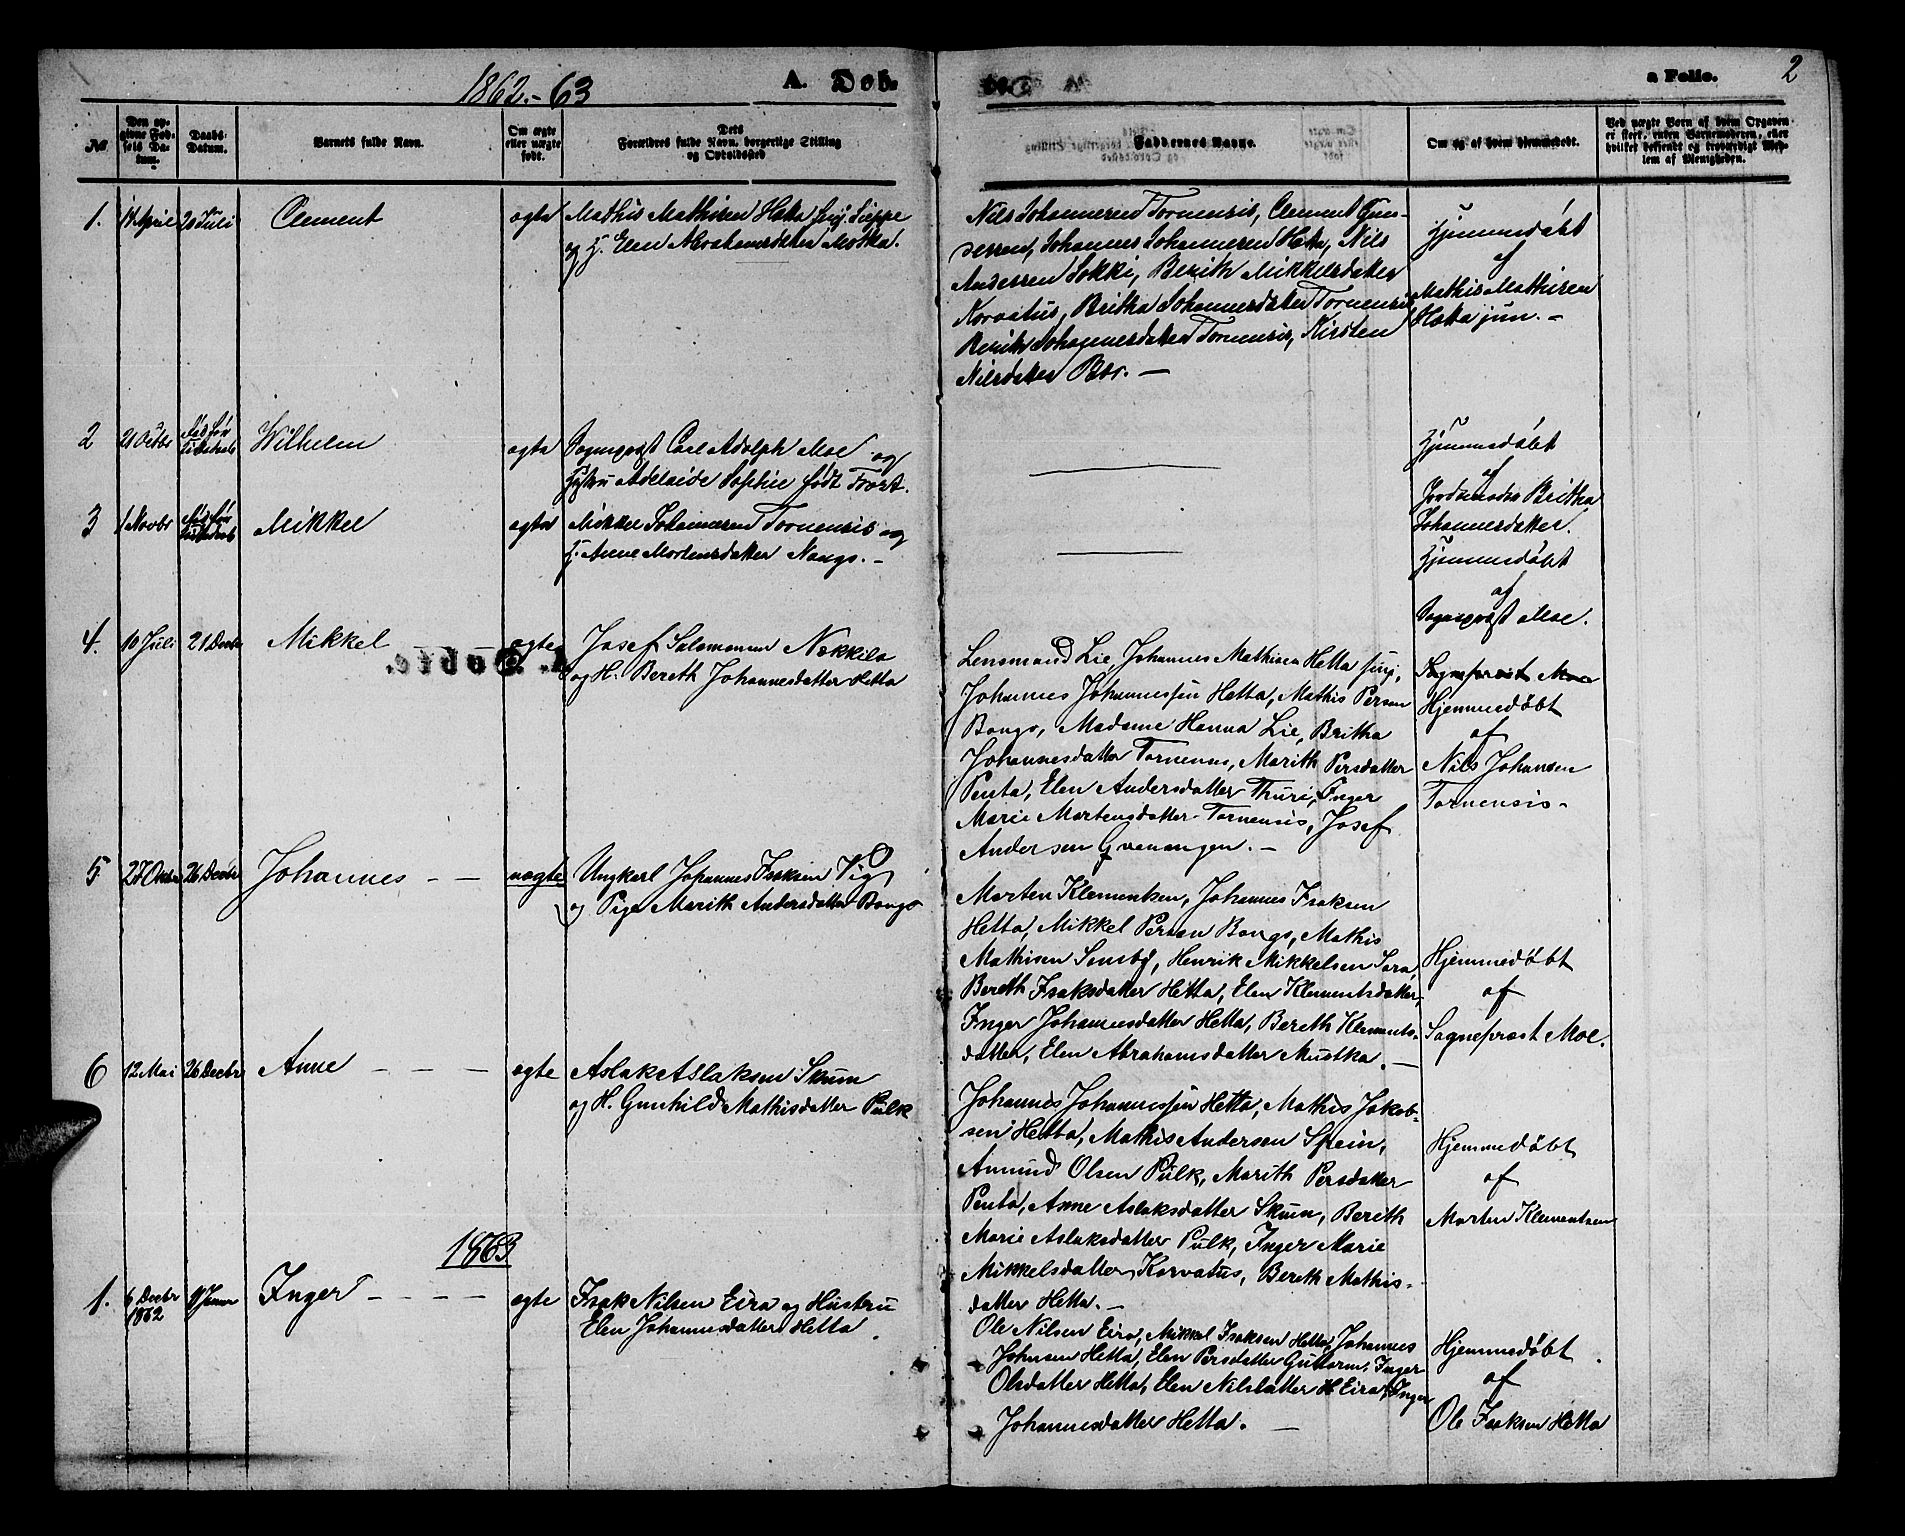 1862.-63
A. Døb.
a Folio.
2
№
Den opgivne Fødsels Datum.
Daabs-Datum.
Barnets fulde Navn.
Om ægte eller uægte født.
Dets Forældres fulde Navn, borgerlige Stilling og Opholdssted
Faddernes Navne.
Om og af hvem hjemmedøbt.
Ved uægte Børn af hvem Opgaven er skeet, enten Barnemoderen, eller hvilket bekjendt og troværdigt Medlem af Menigheden.
1. 14 April 20 Juli Clement ægte Mathis Mathisen Hætta
og H. Elen Abrahamsdatter Motka.
Nils Johannesen Tornensis, Clement Gun-
dersen, Johannes Johannesen Hætta, Nils
Andersen Sokki, Berith Mikkelsdatter
Korvatus, Britha Johannesdatter Tornensis
Berith Johannesdatter Tornensis, Kirsten
Nilsdatter Bær. —
Hjemmedøbt
af
Mathis Mathisen
Hætta jun. —
2 21 Octbr Wilhelm ægte Sogneprest Carl Adolph Moe og
Hustru Adelaide Sophie født
Hjemmedøbt
af
Jordemoder Britha
Johannesdatter.
3 1 Novbr Mikkel ægte Mikkel Johannesen Tornensis og
H. Anne Mortensdatter Nangs. —
Hjemmedøbt
af
Sogneprest Moe.
4. 10 Juli 21 Decbr Mikkel ægte Josef Salomonsen Nekkela
og H. Bereth Johannesdatter Hetta
Lensmand Lie, Johannes Mathisen Hetta jun.,
Johannes Johannessen Hetta, Mathis Persen
Bongo, Madame Hanna Lie, Britha
Johannesdatter Tornensis, Marith Persdatter
Penta, Elen Andersdatter Thuri, Inger
Marie Mortensdatter Tornensis, Josef
Andersen Qvenangen. —
Sogneprest Moe
Hjemmedøbt
af
Nils Johansen
Tornensis -
5 27 Oktbr 26 Decbr Johannes - — uægte Ungkarl Johannes Isaksen Vig
og Pige Marith Andersdatter Bongo
Morten Klementsen, Johannes Isaksen
Hetta, Mikkel Persen Bongo, Mathis
Mathisen, Henrik Mikkelsen Sara,
Bereth Isaksdatter Hetta, Elen Klementsdatter,
Inger Johannesdatter Hetta, Bereth Klements-
datter, Elen Abrahamsdatter Mustka. —
Hjemmedøbt
af
Sogneprest Moe.
6 12 Mai 26 Decbr Anne - — — ægte Aslak Aslaksen Skum
og H. Gunhild Mathisdatter Pulk
Johannes Johannessen Hetta, Mathis Jakob-
sen Hetta, Mathis Andersen Spein,
Amund Olsen Pulk, Marith Persdatter
Penta, Anne Aslaksdatter Skum, Bereth
Marie Aslaksdatter Pulk, Inger Marie
Mikkelsdatter Korvatus, Bereth Mathis-
datter Hetta. —
Hjemmedøbt
af
Morten Klementsen
1863
1. 6 Decbr 1862 Inger - — — — ægte Isak Nilsen Eira og Hustru
Elen Johannesdatter Hetta.
Ole Nilsen Eira, Mikkel Isaksen Hetta, Johannes
Johnsen Hetta, Elen Persdatter Guttorm, Inger
Olsdatter Hetta, Elen Nilsdatter Eira, Inger
Johannesdatter Hetta. —
Hjemmedøbt
af
Ole Isaksen Hetta